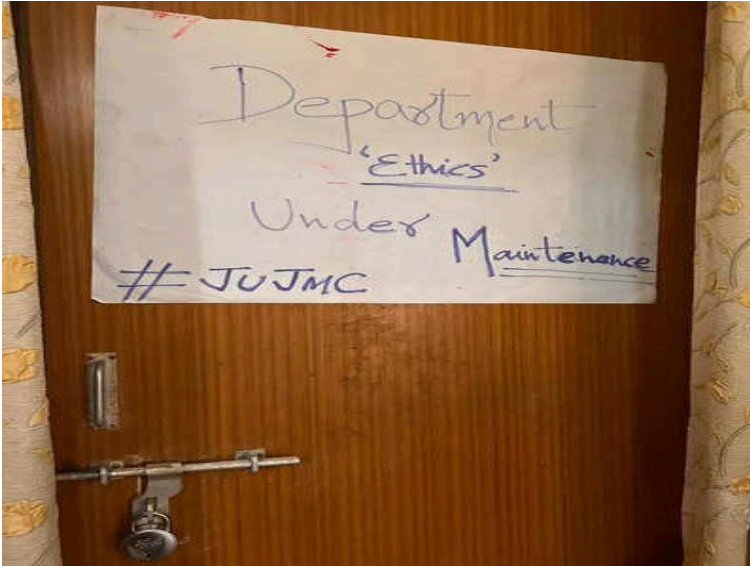 Department
'Ethics'
Under Maintenance
# JUJMC